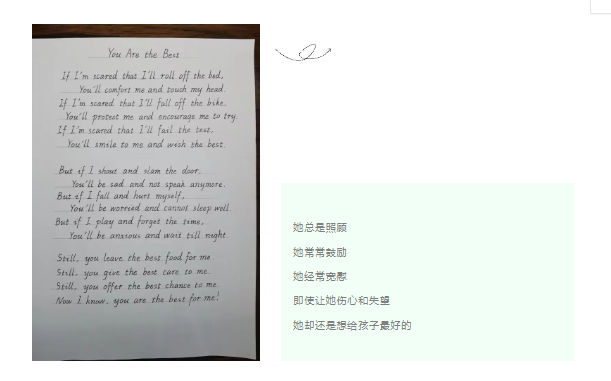 You Are the Best
If I'm scared that I'll roll off the bed,
You'll comfort me and touch my head.
If I'm scared that I'll fall off the bike.
You'll protect me and encourage me to try.
If I'm scared that I'll fail the test,
You'll smile to me and wish the best.
But if I shout and slam the door.
You'll be sad and not speak anymore.
But if I fall and hurt myself,
You'll be worried and cannot sleep well.
But if I play and forget the time,
You'll be anxious and wait till night.
Still, you leave the best food for me.
Still, you give the best care to me.
Still, you offer the best chance to me.
Now I know, you are the best for me!
她总是照顾
她常常鼓励
她经常宽慰
即使让她伤心和失望
她却还是想给孩子最好的